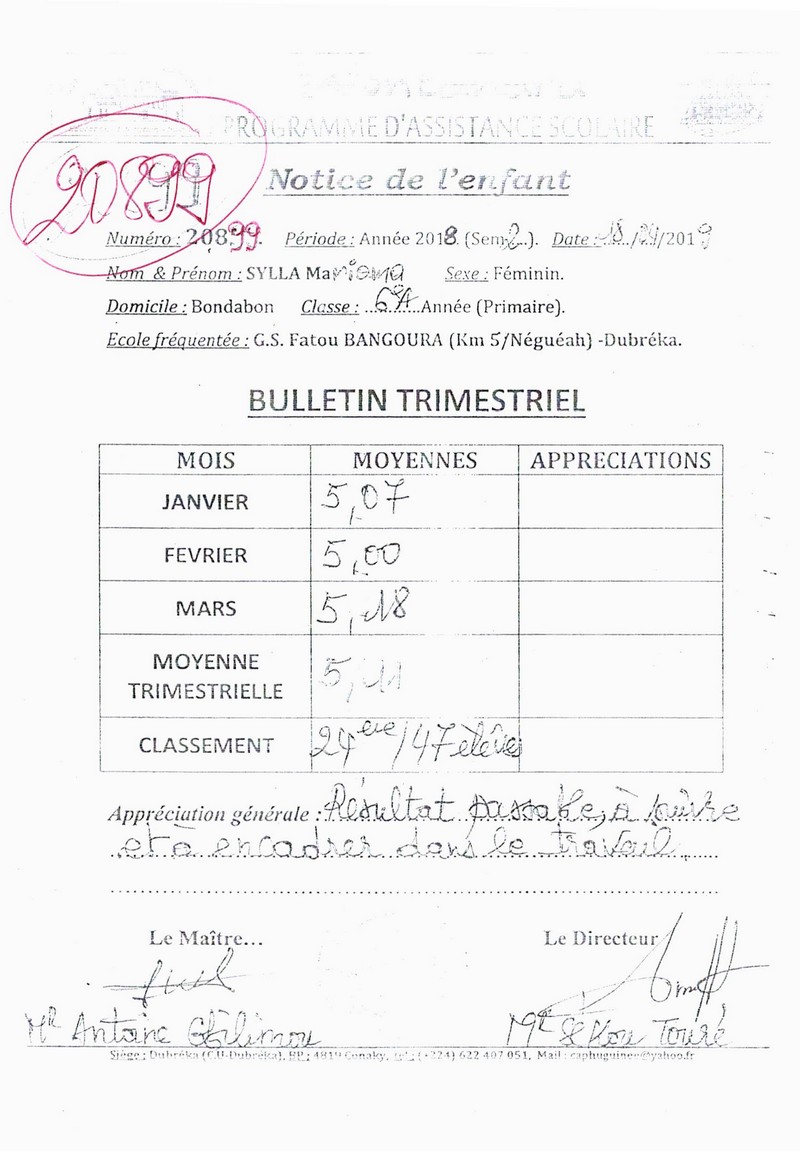 PROGRAMME D'ASSISTANCE SCOLAIRE
20899
Notice de l'enfant
Numéro : 20899. Période : Année 2018 (Sem 2..). Date : 18/04/2019
Nom & Prénom : SYLLA Mariama Sexe : Féminin.
Domicile : Bondabon Classe : ..6è A..Année (Primaire).
Ecole fréquentée : G.S. Fatou BANGOURA (Km 5/Néguéah) -Dubréka.
BULLETIN TRIMESTRIEL
MOIS MOYENNES APPRECIATIONS
JANVIER 5,07
FEVRIER 5,00
MARS 5,18
MOYENNE
TRIMESTRIELLE 5,11
CLASSEMENT 24ère/47 élèves
Appréciation générale : Résultat passable, à suivre
et à encadrer dans le travail
Le Maître... Le Directeur
Mr Antoine Mr Sékou Touré
Siège : Dubréka (C.U-Dubréka), BP : 4819 Conaky, tel : (+224) 622 407 051, Mail : caphuguinee@yahoo.fr